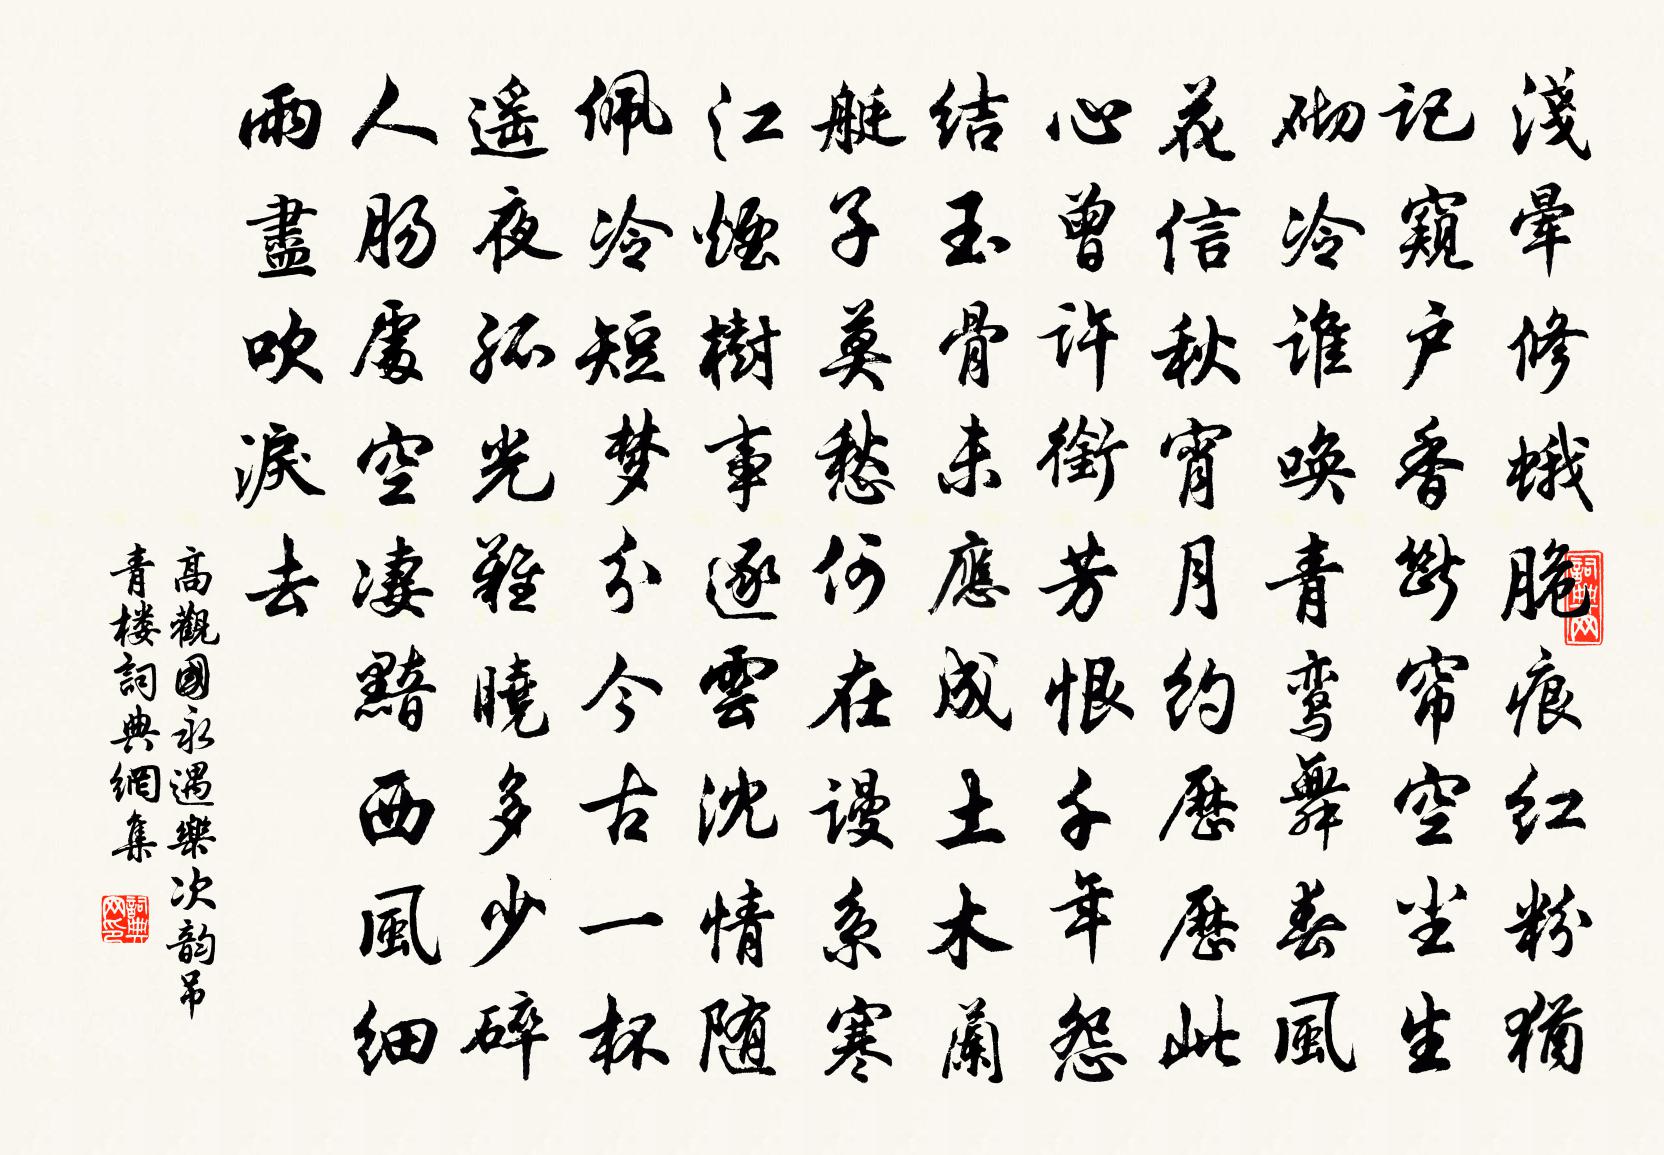 淺暈修蛾脆痕红粉猶
記窺户香斷帘空尘生
砌冷誰唤青鸾舞春風
花信秋宵月约歷歷此
心曾許銜芳恨千年怨
结玉骨未應成土木蘭
艇子莫愁何在谩系寒
江煙樹事逐雲沈情随
佩冷短梦分今古一杯
遥夜孤光難曉多少碎
人肠處空凄黯西風细
雨盡吹淚去
高觀國永遇樂次韵吊
青楼詞典網集
詞典网
詞典网印